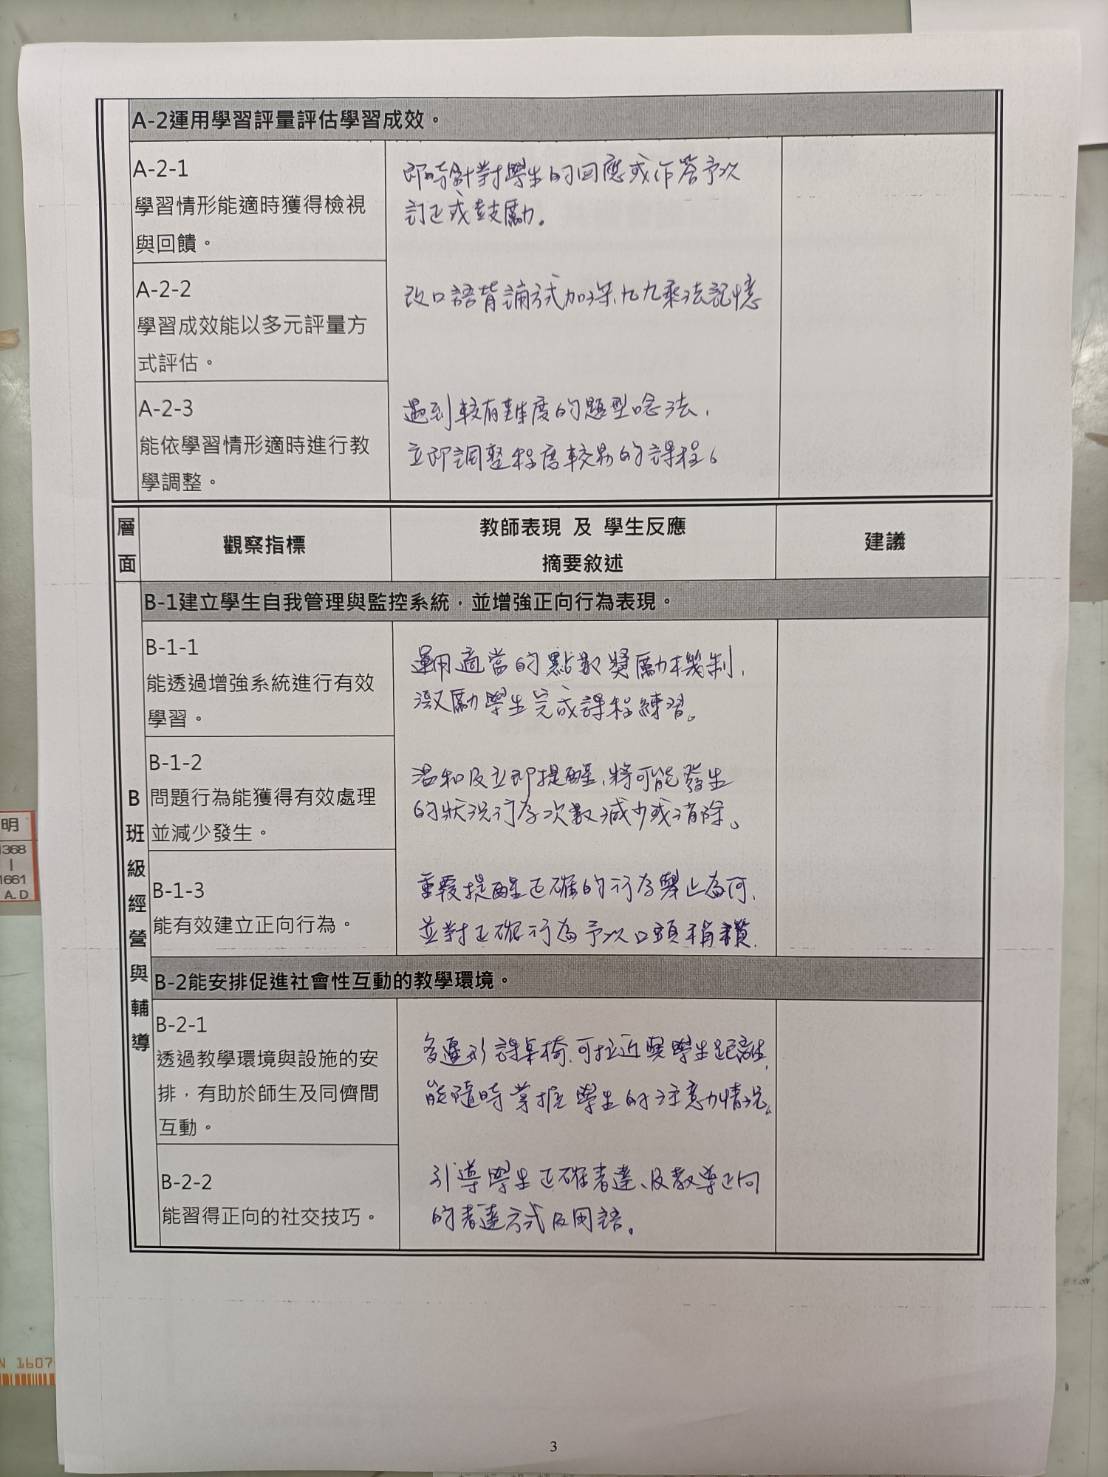 A-2運用學習評量評估學習成效。
A-2-1
學習情形能適時獲得檢視
與回饋。
即時針對學生的回應或作答予以
訂正或鼓勵。
A-2-2
學習成效能以多元評量方
式評估。
改口語背誦方式加深九九乘法記憶
A-2-3
能依學習情形適時進行教
學調整。
遇到較有難度的題型唸法,
立即調整程度較易的課程。
層
面
觀察指標
教師表現 及 學生反應
摘要敘述
建議
B
班
級
經
營
與
輔
導
B-1建立學生自我管理與監控系統，並增強正向行為表現。
B-1-1
能透過增強系統進行有效
學習。
運用適當的點數獎勵機制,
激勵學生完成課程練習。
B-1-2
問題行為能獲得有效處理
並減少發生。
溫和及立即提醒,將可能發生
的狀況行為次數減少或消除。
B-1-3
能有效建立正向行為。
重覆提醒正確的行為舉止為何,
並對正確行為予以口頭稱讚.
B-2能安排促進社會性互動的教學環境。
B-2-1
透過教學環境與設施的安
排，有助於師生及同儕間
互動。
多邊形課桌椅,可拉近與學生距離,
能隨時掌握學生的注意力情況。
B-2-2
能習得正向的社交技巧。
引導學生正確表達、及教導正向
的表達方式及用語。
3
明
1368
|
1661
A.D
N 1607